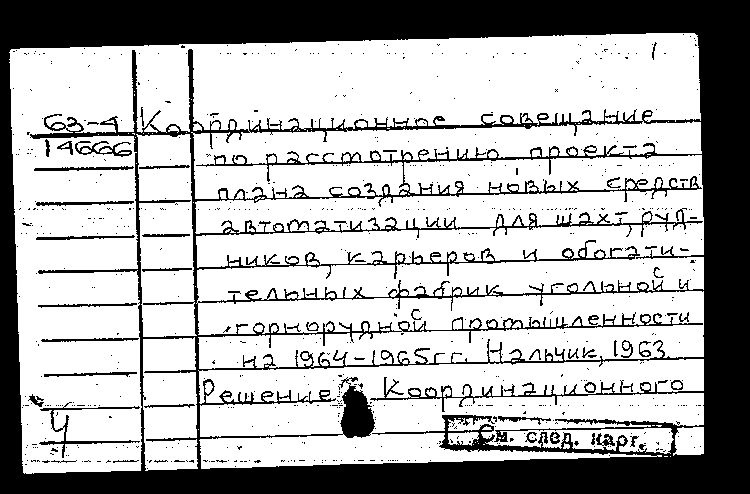 1
63-4 Координационное совещание
14666 по рассмотрению проекта
плана создания новых средств
автоматизации для шахт, руд-
ников, карьеров и обогати-
тельных фабрик угольной и
горнорудной промышленности
на 1964-1965гг. Нальчик, 1963
Решение Координационного
Ч
См. след. карт.